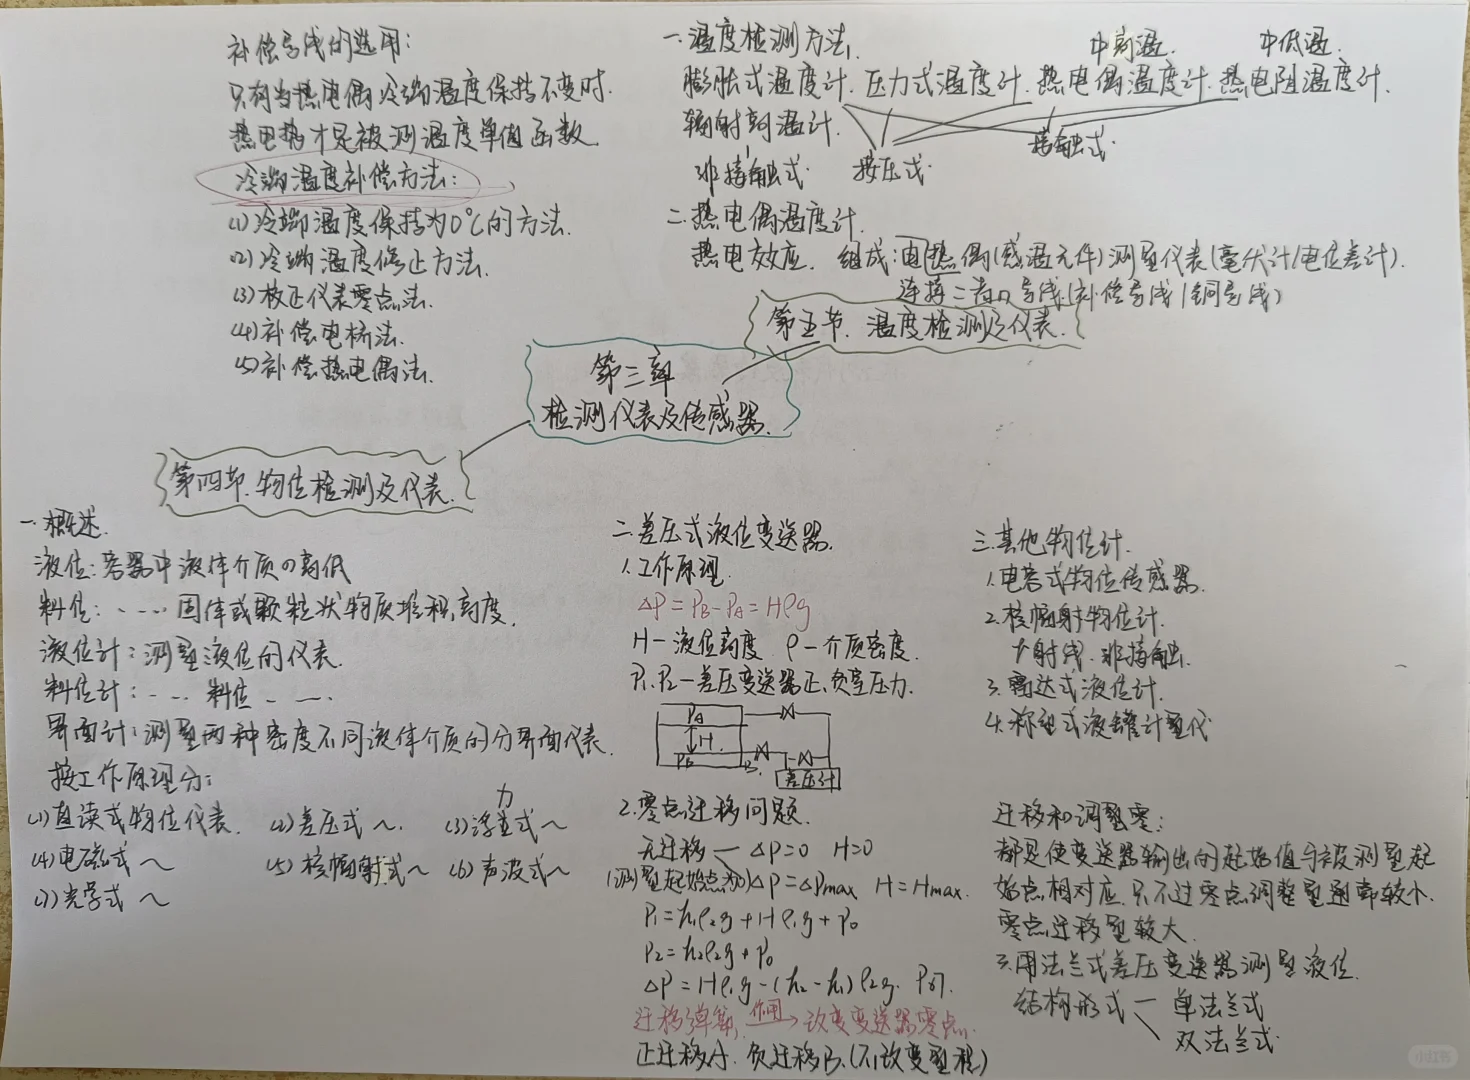 补偿导线的选用:
只有当热电偶冷端温度保持不变时.
热电势才是被测温度单值函数.
冷端温度补偿方法:
(1)冷端温度保持为0℃的方法.
(2)冷端温度修正方法.
(3)校正仪表零点法.
(4)补偿电桥法.
(5)补偿热电偶法.
一.温度检测方法.
中高温. 中低温.
膨胀式温度计. 压力式温度计. 热电偶温度计. 热电阻温度计.
辐射高温计.
非接触式. 接压式. 接触式.
二.热电偶温度计.
热电效应. 组成:电热偶(感温元件)测量仪表(毫伏计/电位差计).
连接二者の导线(补偿导线/铜导线)
第五节.温度检测及仪表.
第三章
检测仪表及传感器.
第四节.物位检测及仪表.
一.概述.
液位:容器中液体介质の高低
料位:、、…. 固体或颗粒状物质堆积高度.
液位计:测量液位的仪表.
料位计:-- -. 料位- --.
界面计:测量两种密度不同液体介质的分界面仪表.
按工作原理分:
力
(1)直读式物位仪表. (2)差压式~. (3)浮式~
(4)电磁式~ (5)核辐射式~ (6)声波式~
光学式~
二.差压式液位变送器.
1.工作原理.
ΔP=PB-PA=Hρg
H-液位高度 ρ-介质密度.
P1.P2-差压变送器正、负室压力.
PA
H
PB
B.
差压计
2.零点迁移问题.
无迁移 — ΔP=0 H=0
(测量起始点为0)ΔP=ΔPmax H=Hmax.
P1=h1ρ2g+Hρ1g+P0
P2=h2ρ2g+P0
ΔP=Hρ1g-(h2-h1)ρ2g.
迁移弹簧, 作用→改变变送器零点.
正迁移A. 负迁移B.(不改变量程)
三.其他物位计.
1.电容式物位传感器.
2.核辐射物位计.
γ射线.非接触.
3.雷达式液位计.
4.称重式液罐计量仪
迁移和调整零:
都是使变送器输出的起始值与被测量起
始点相对应.只不过零点调整量通常较小.
零点迁移量较大.
3.用法兰式差压变送器测量液位.
结构形式 — 单法兰式
双法兰式.
小红书